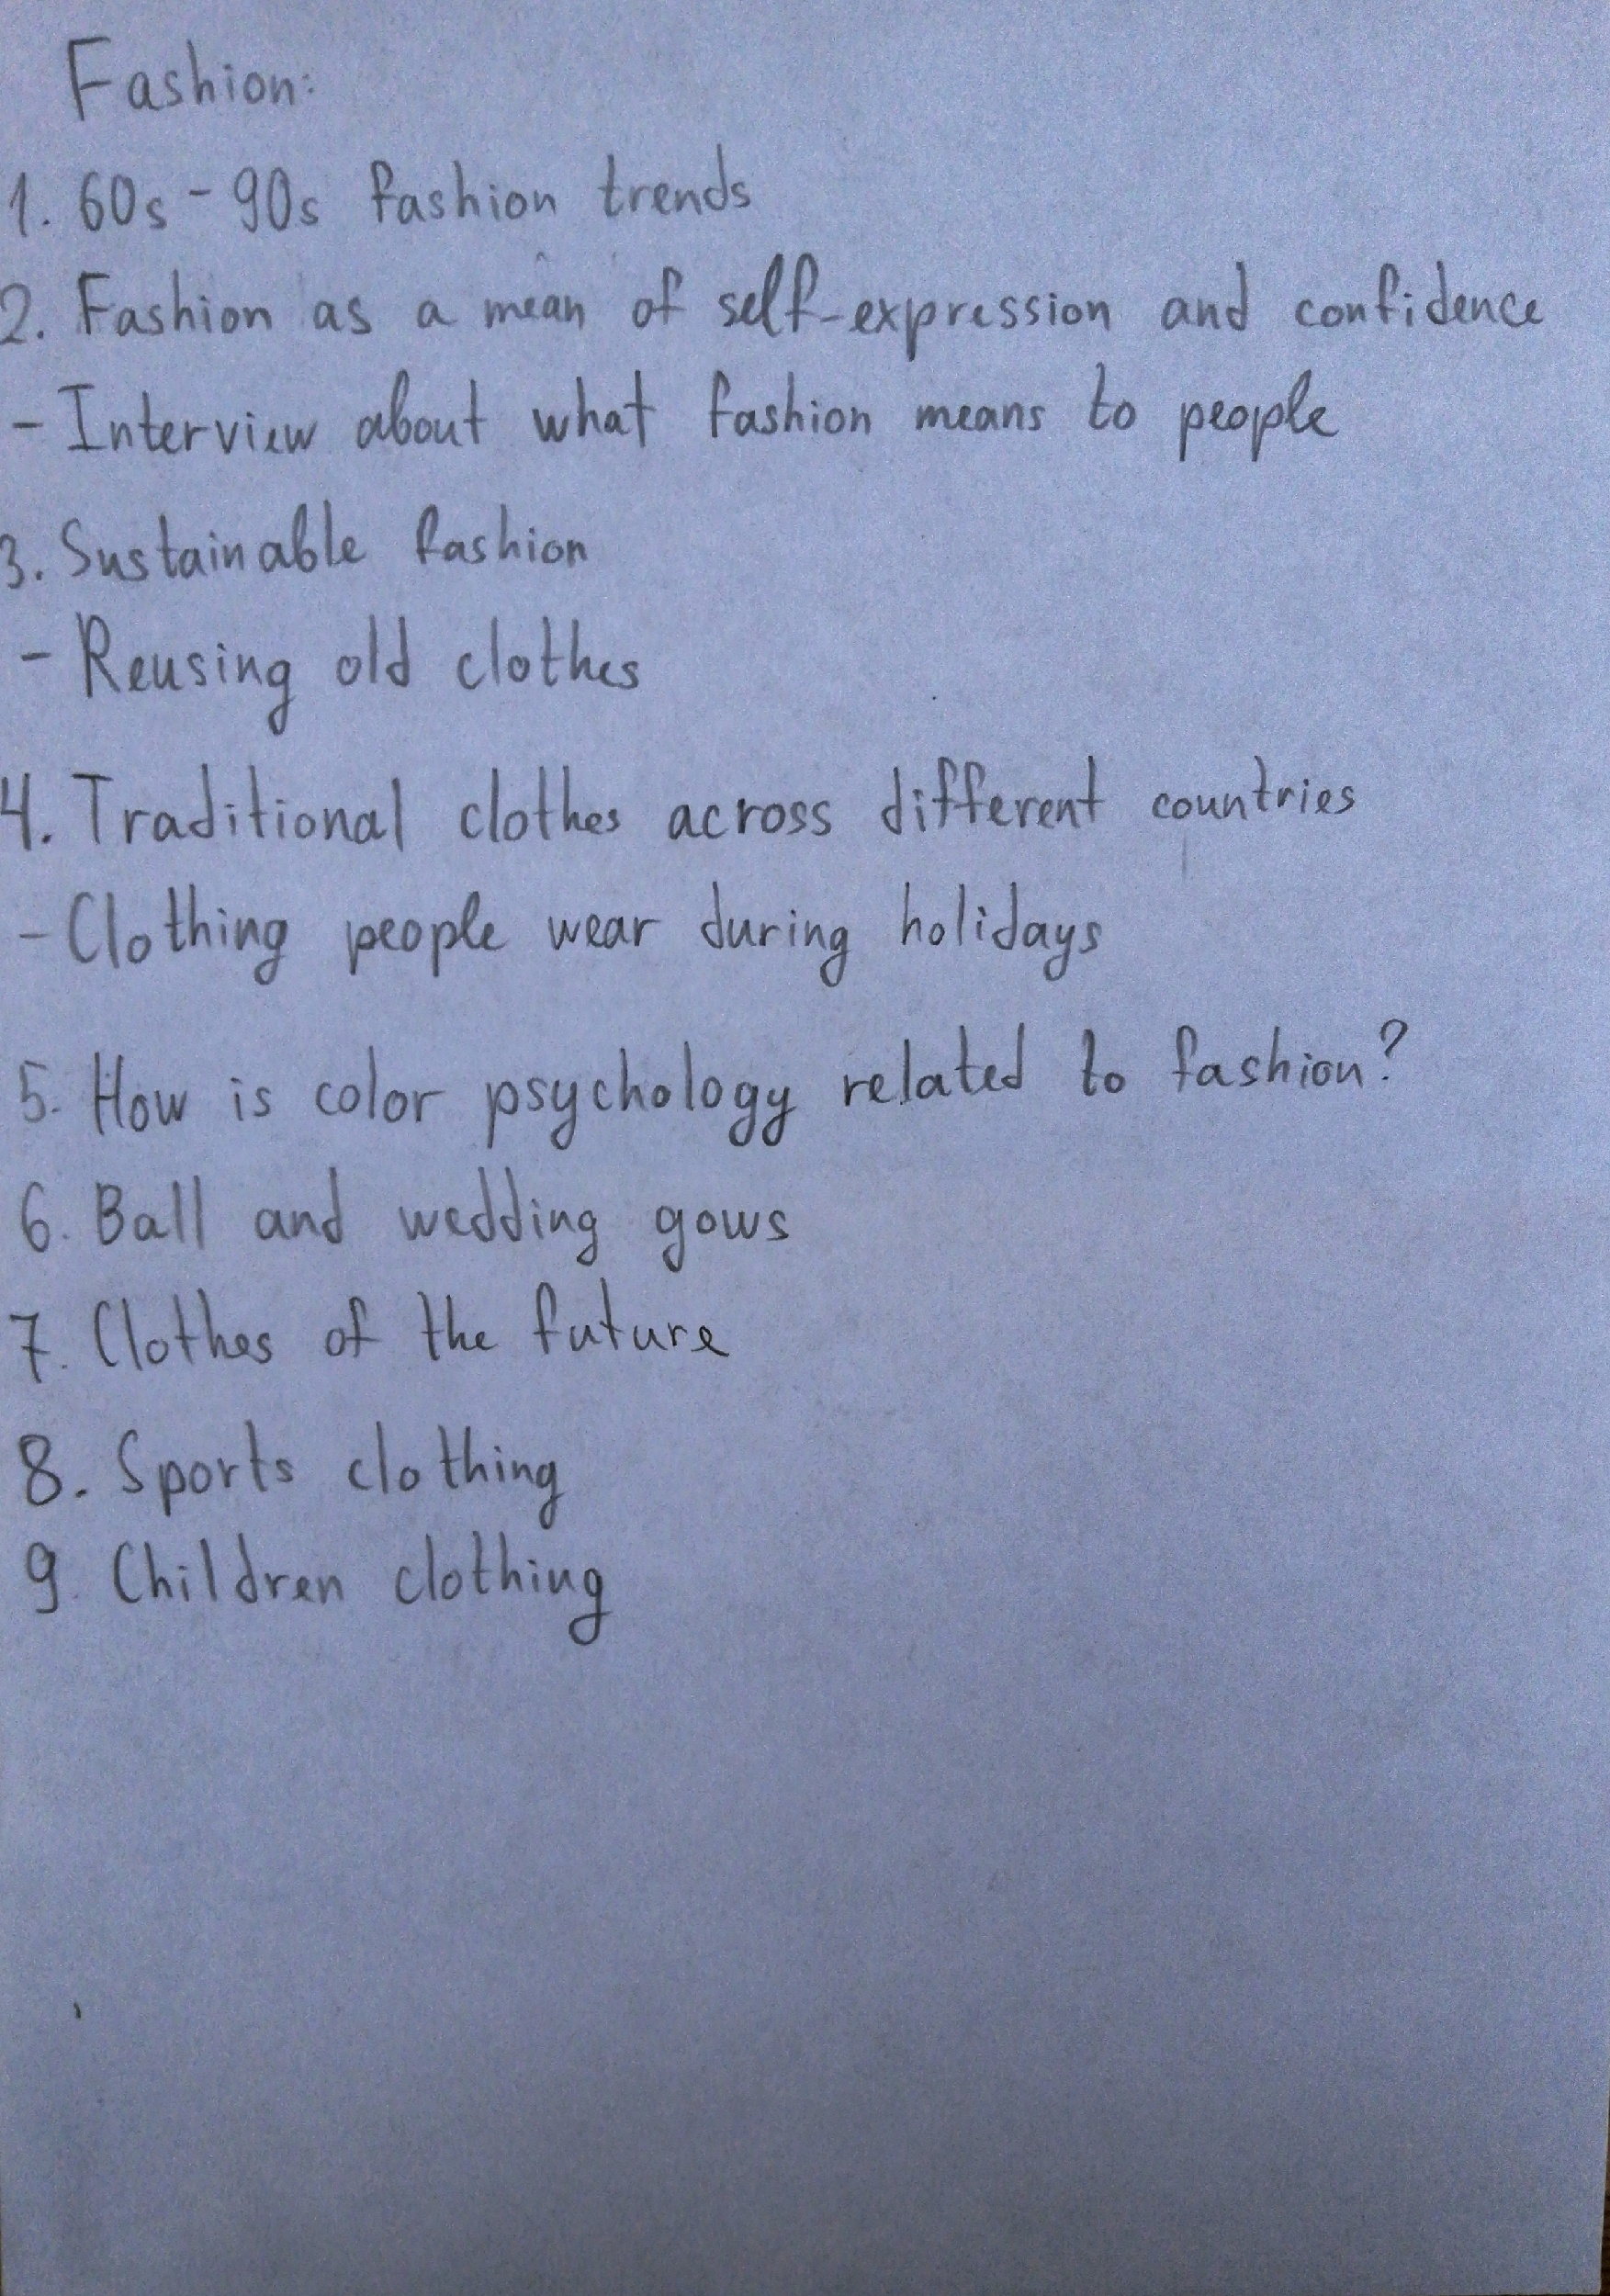 Fashion:
1. 60s - 90s fashion trends
2. Fashion as a mean of self-expression and confidence
- Interview about what fashion means to people
3. Sustainable fashion
- Reusing old clothes
4. Traditional clothes across different countries
- Clothing people wear during holidays
5. How is color psychology related to fashion?
6. Ball and wedding gows
7. Clothes of the future
8. Sports clothing
9. Children clothing